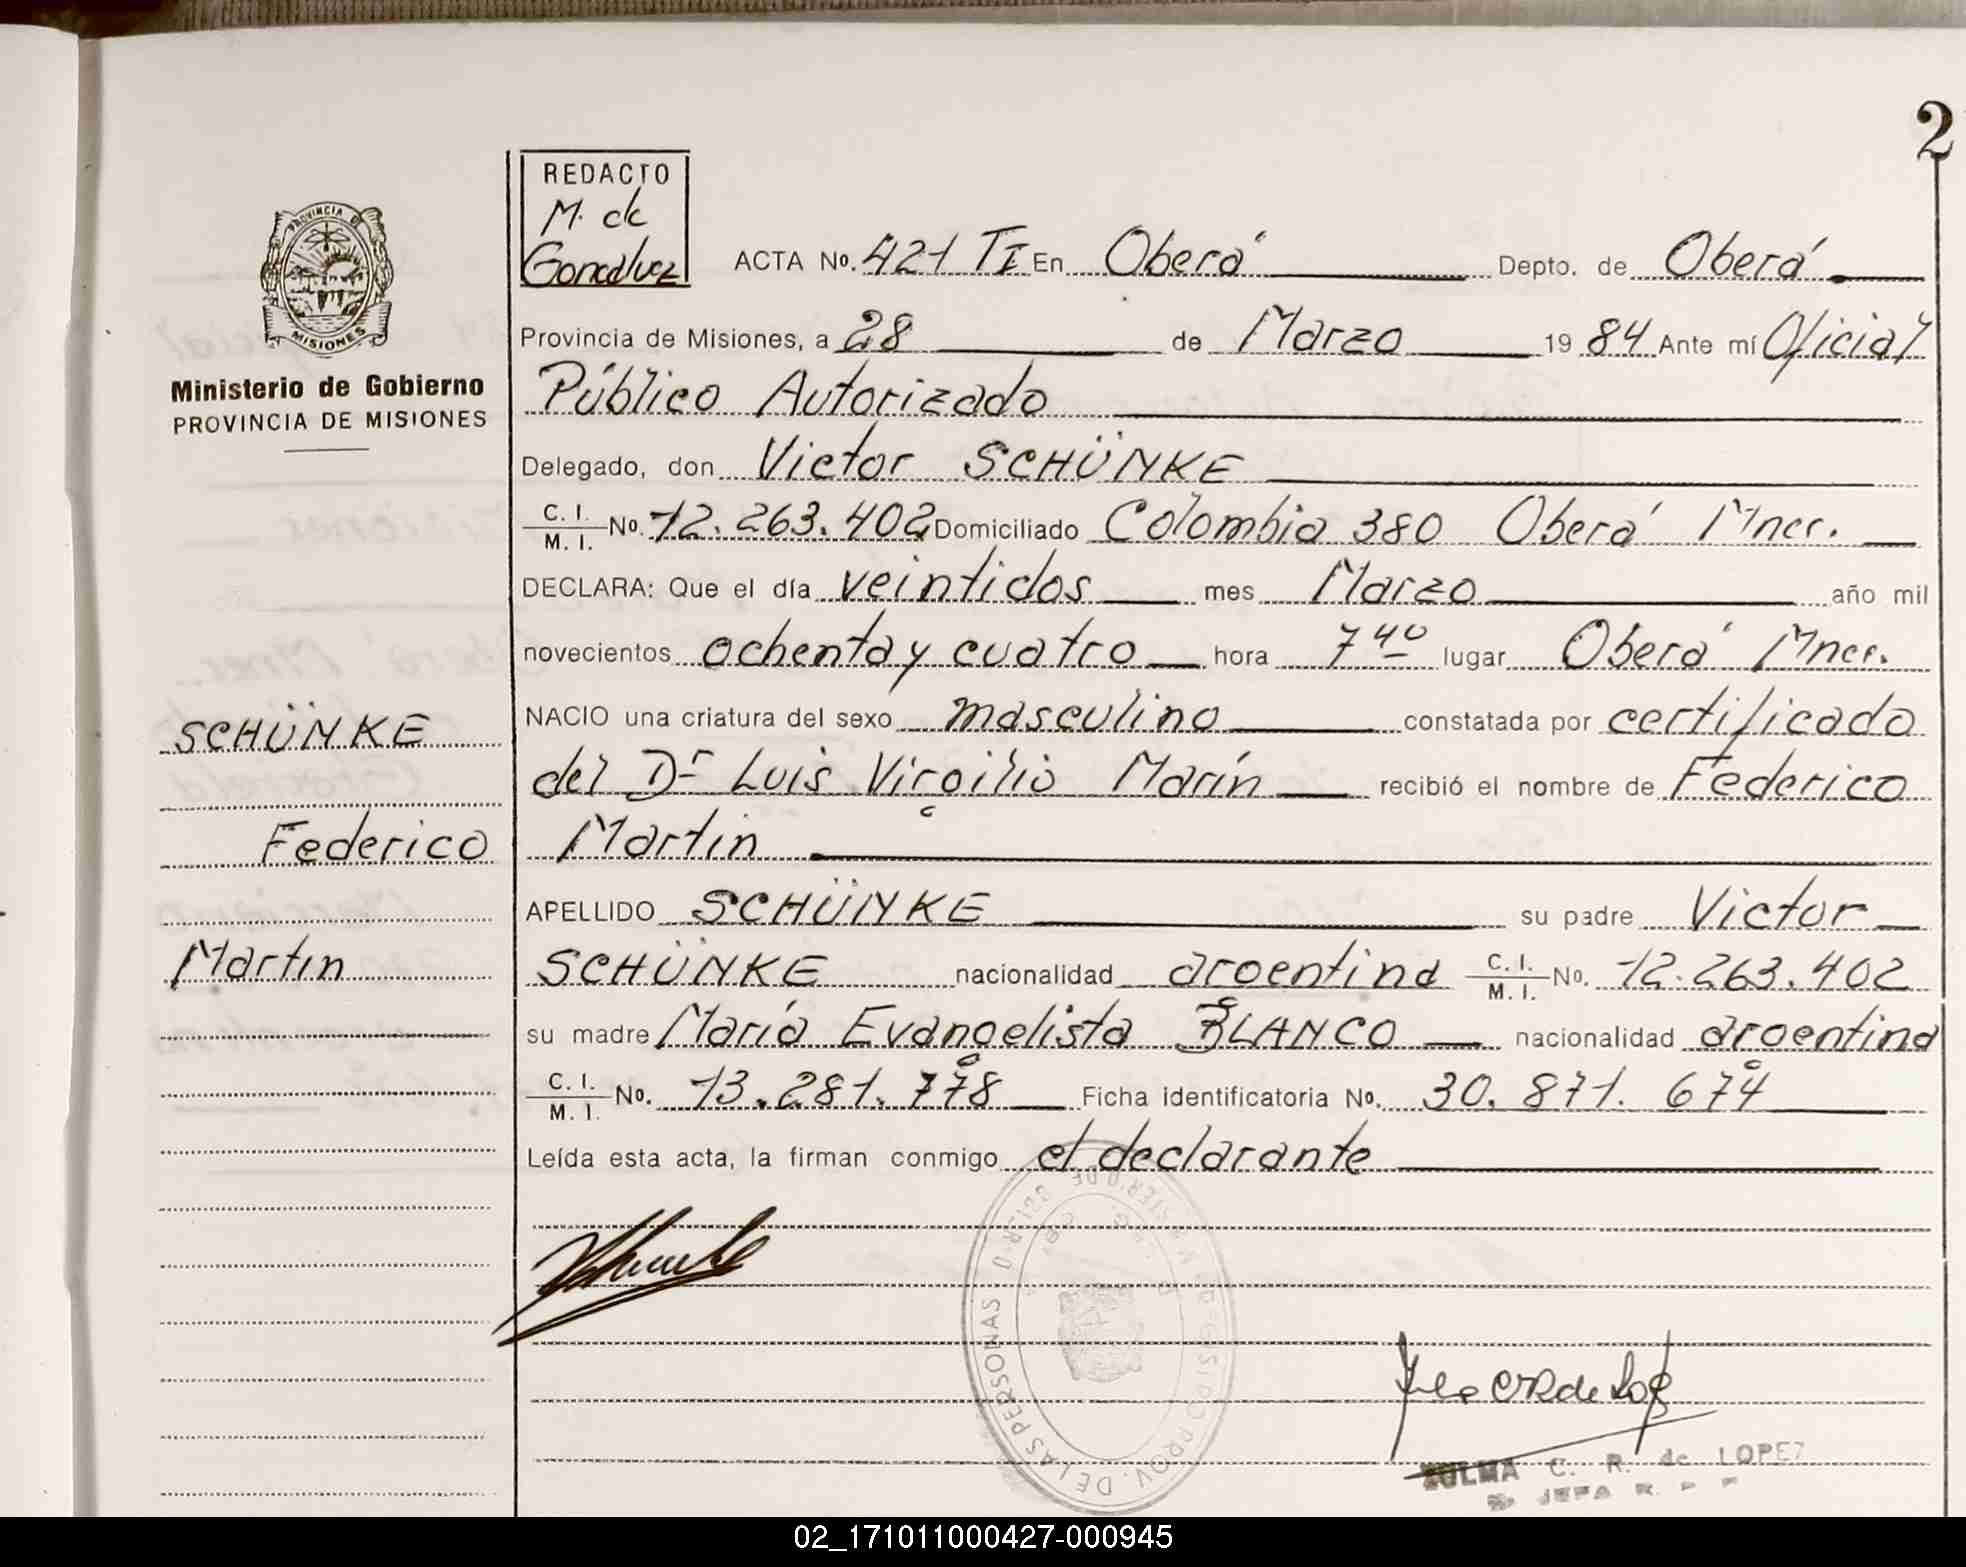 2
REDACTO
M. de
Goncalvez
PROVINCIA DE
MISIONES
Ministerio de Gobierno
PROVINCIA DE MISIONES
ACTA No. 421 TI En Oberá Depto. de Oberá
Provincia de Misiones, a 28 de Marzo 19 84 Ante mí Oficial
Público Autorizado
Delegado, don Victor SCHÜNKE
C. I. / M. I. No. 12.263.402 Domiciliado Colombia 380 Oberá Mnes.
DECLARA: Que el día veintidos mes Marzo año mil
novecientos ochenta y cuatro hora 7 40 lugar Oberá Mnes.
NACIO una criatura del sexo masculino constatada por certificado
del Dr Luis Virgilio Marín recibió el nombre de Federico
Martin
APELLIDO SCHÜNKE su padre Victor
SCHÜNKE nacionalidad argentina C. I. / M. I. No. 12.263.402
su madre María Evangelista BLANCO nacionalidad argentina
C. I. / M. I. No. 13.281.778 Ficha identificatoria No. 30.871.674
Leída esta acta, la firman conmigo el declarante
SCHÜNKE
Federico
Martin
PROV. DE LAS PERSONAS
ZULMA C. R. de LOPEZ
JEFA R. P. P.
02_171011000427-000945